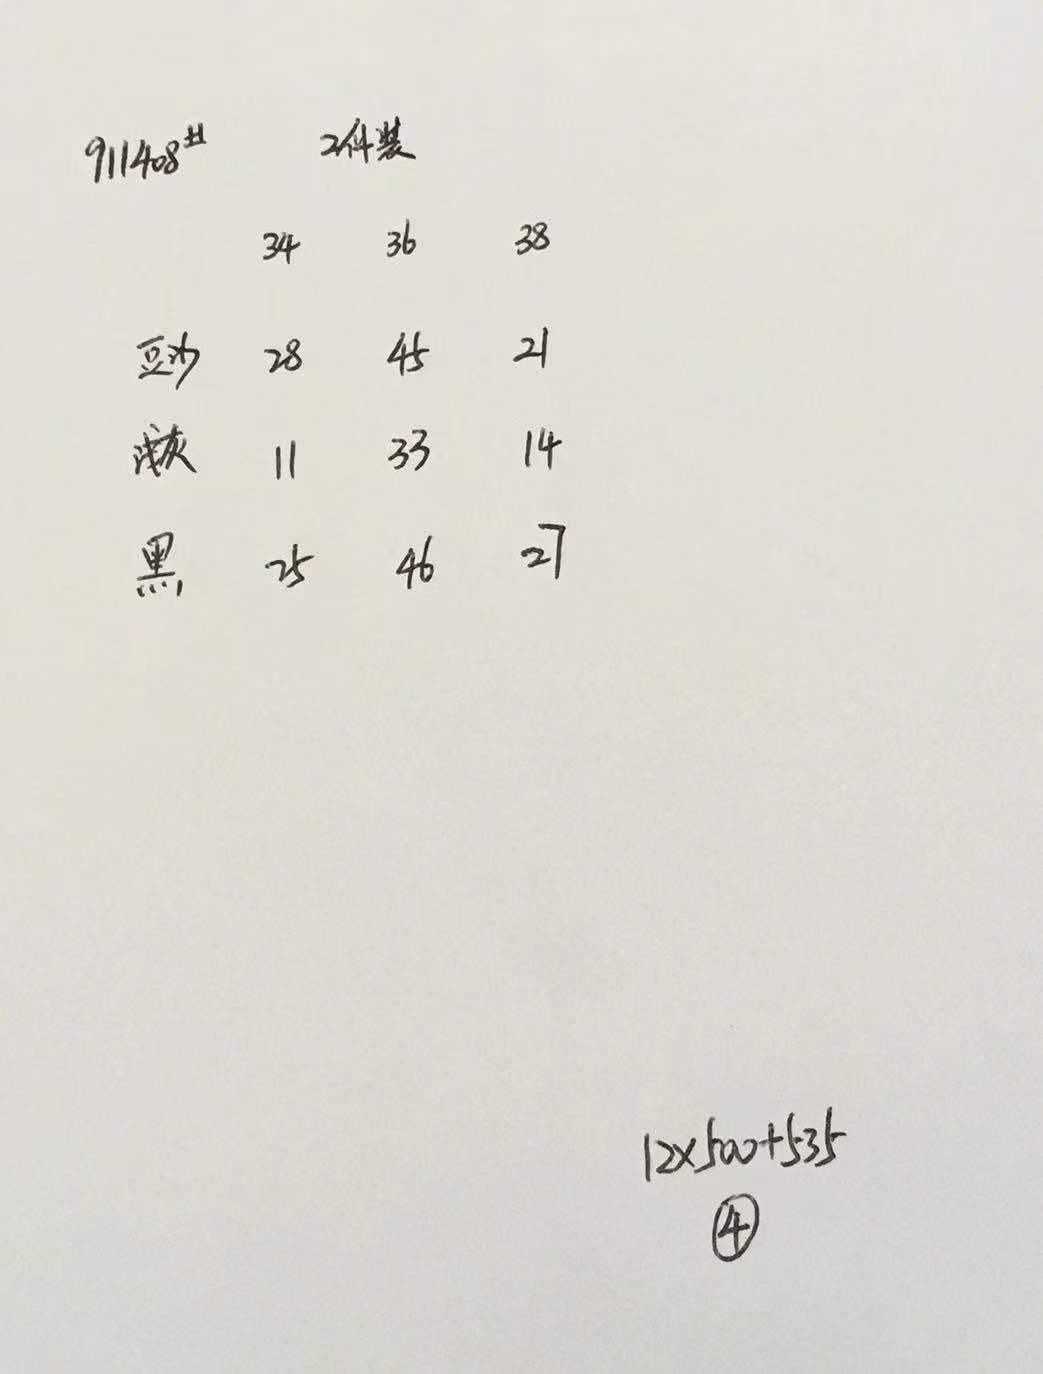 911408# 2件装
34 36 38
豆沙 28 45 21
浅灰 11 33 14
黑 25 46 27
12×500+535
④